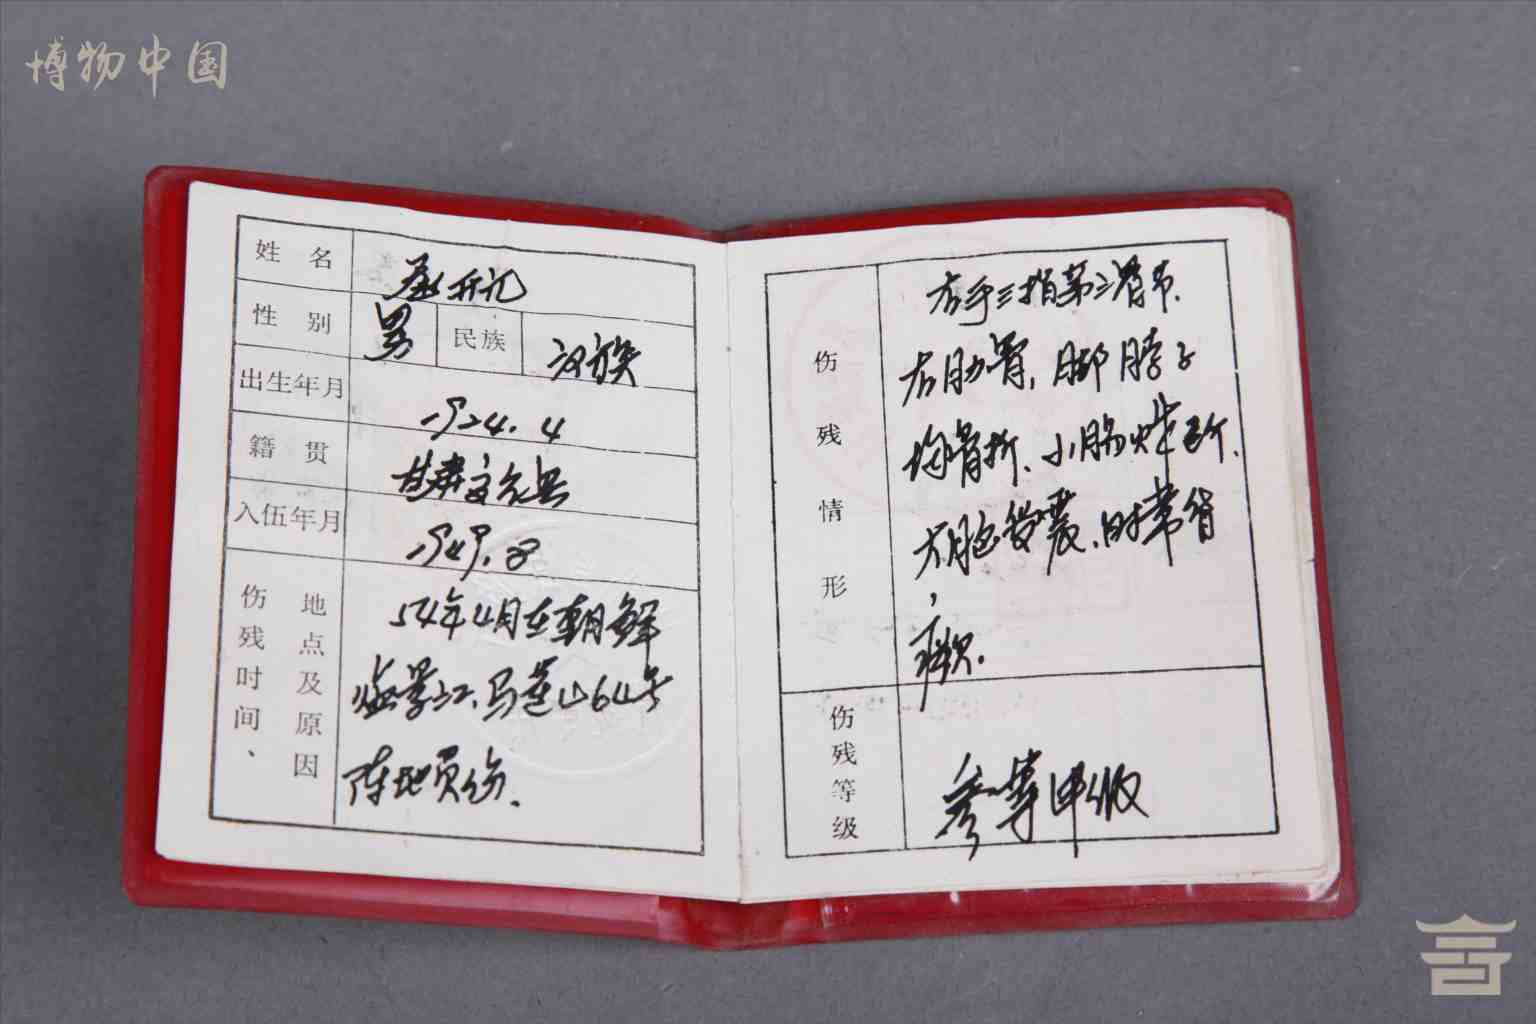 博物中国
姓名
开礼
性别
男
民族
汉族
出生年月
1924.4
籍贯
甘肃文县
入伍年月
1949.8
伤残时间、
地点及原因
54年4月在朝鲜
江马莲山64号
阵地负伤.
伤残情形
右手三指第二骨节.
右肋骨,脚脖子
均骨折、小肠炸断.
大脑受震、时常
伤残等级
叁等甲级